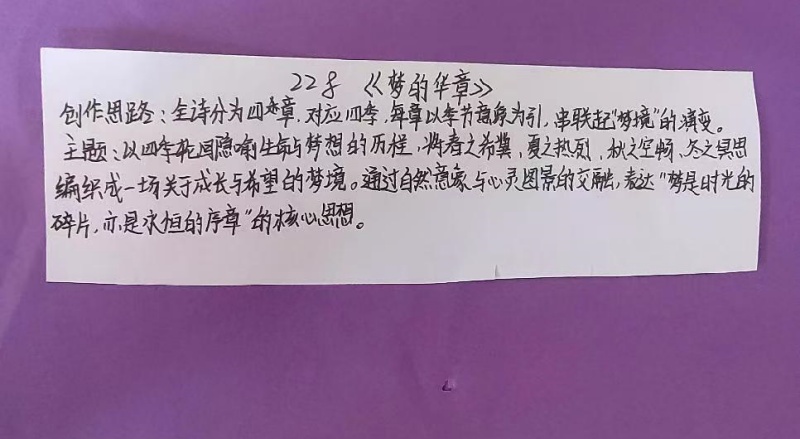 228 《梦的华章》
创作思路：全诗分为四乐章，对应四季，每章以季节意象为引，串联起“梦境”的演变。
主题：以四季轮回隐喻生命与梦想的历程，将春之希冀、夏之热烈、秋之空畅、冬之冥思
编织成一场关于成长与希望的梦境。通过自然意象与心灵图景的交融，表达“梦是时光的
碎片，亦是永恒的序章”的核心思想。